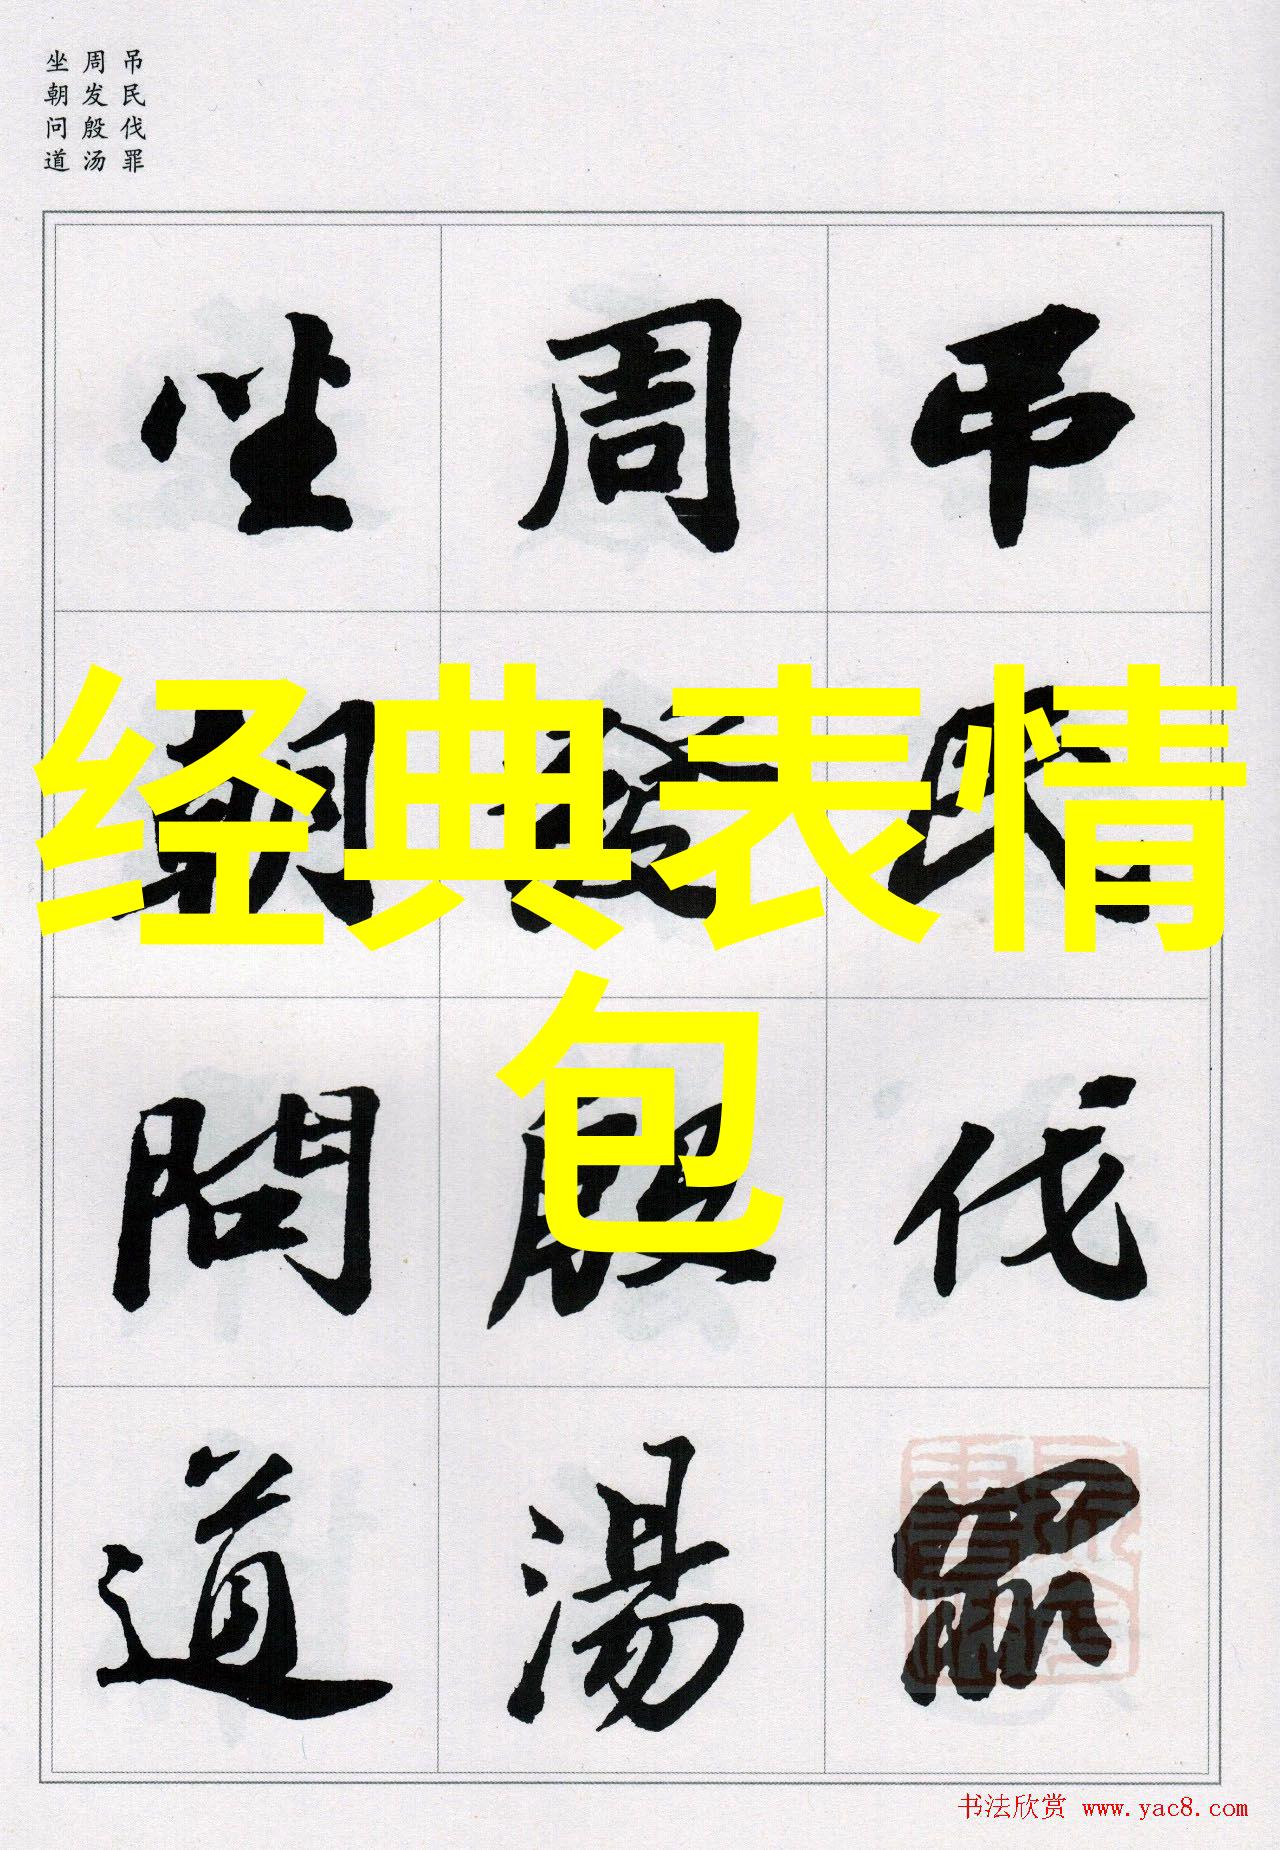 吊民伐罪
周发殷汤
坐朝问道
吊民伐罪
周發殷湯
坐朝問道
经典表情
包
书法欣赏 www.yac8.com